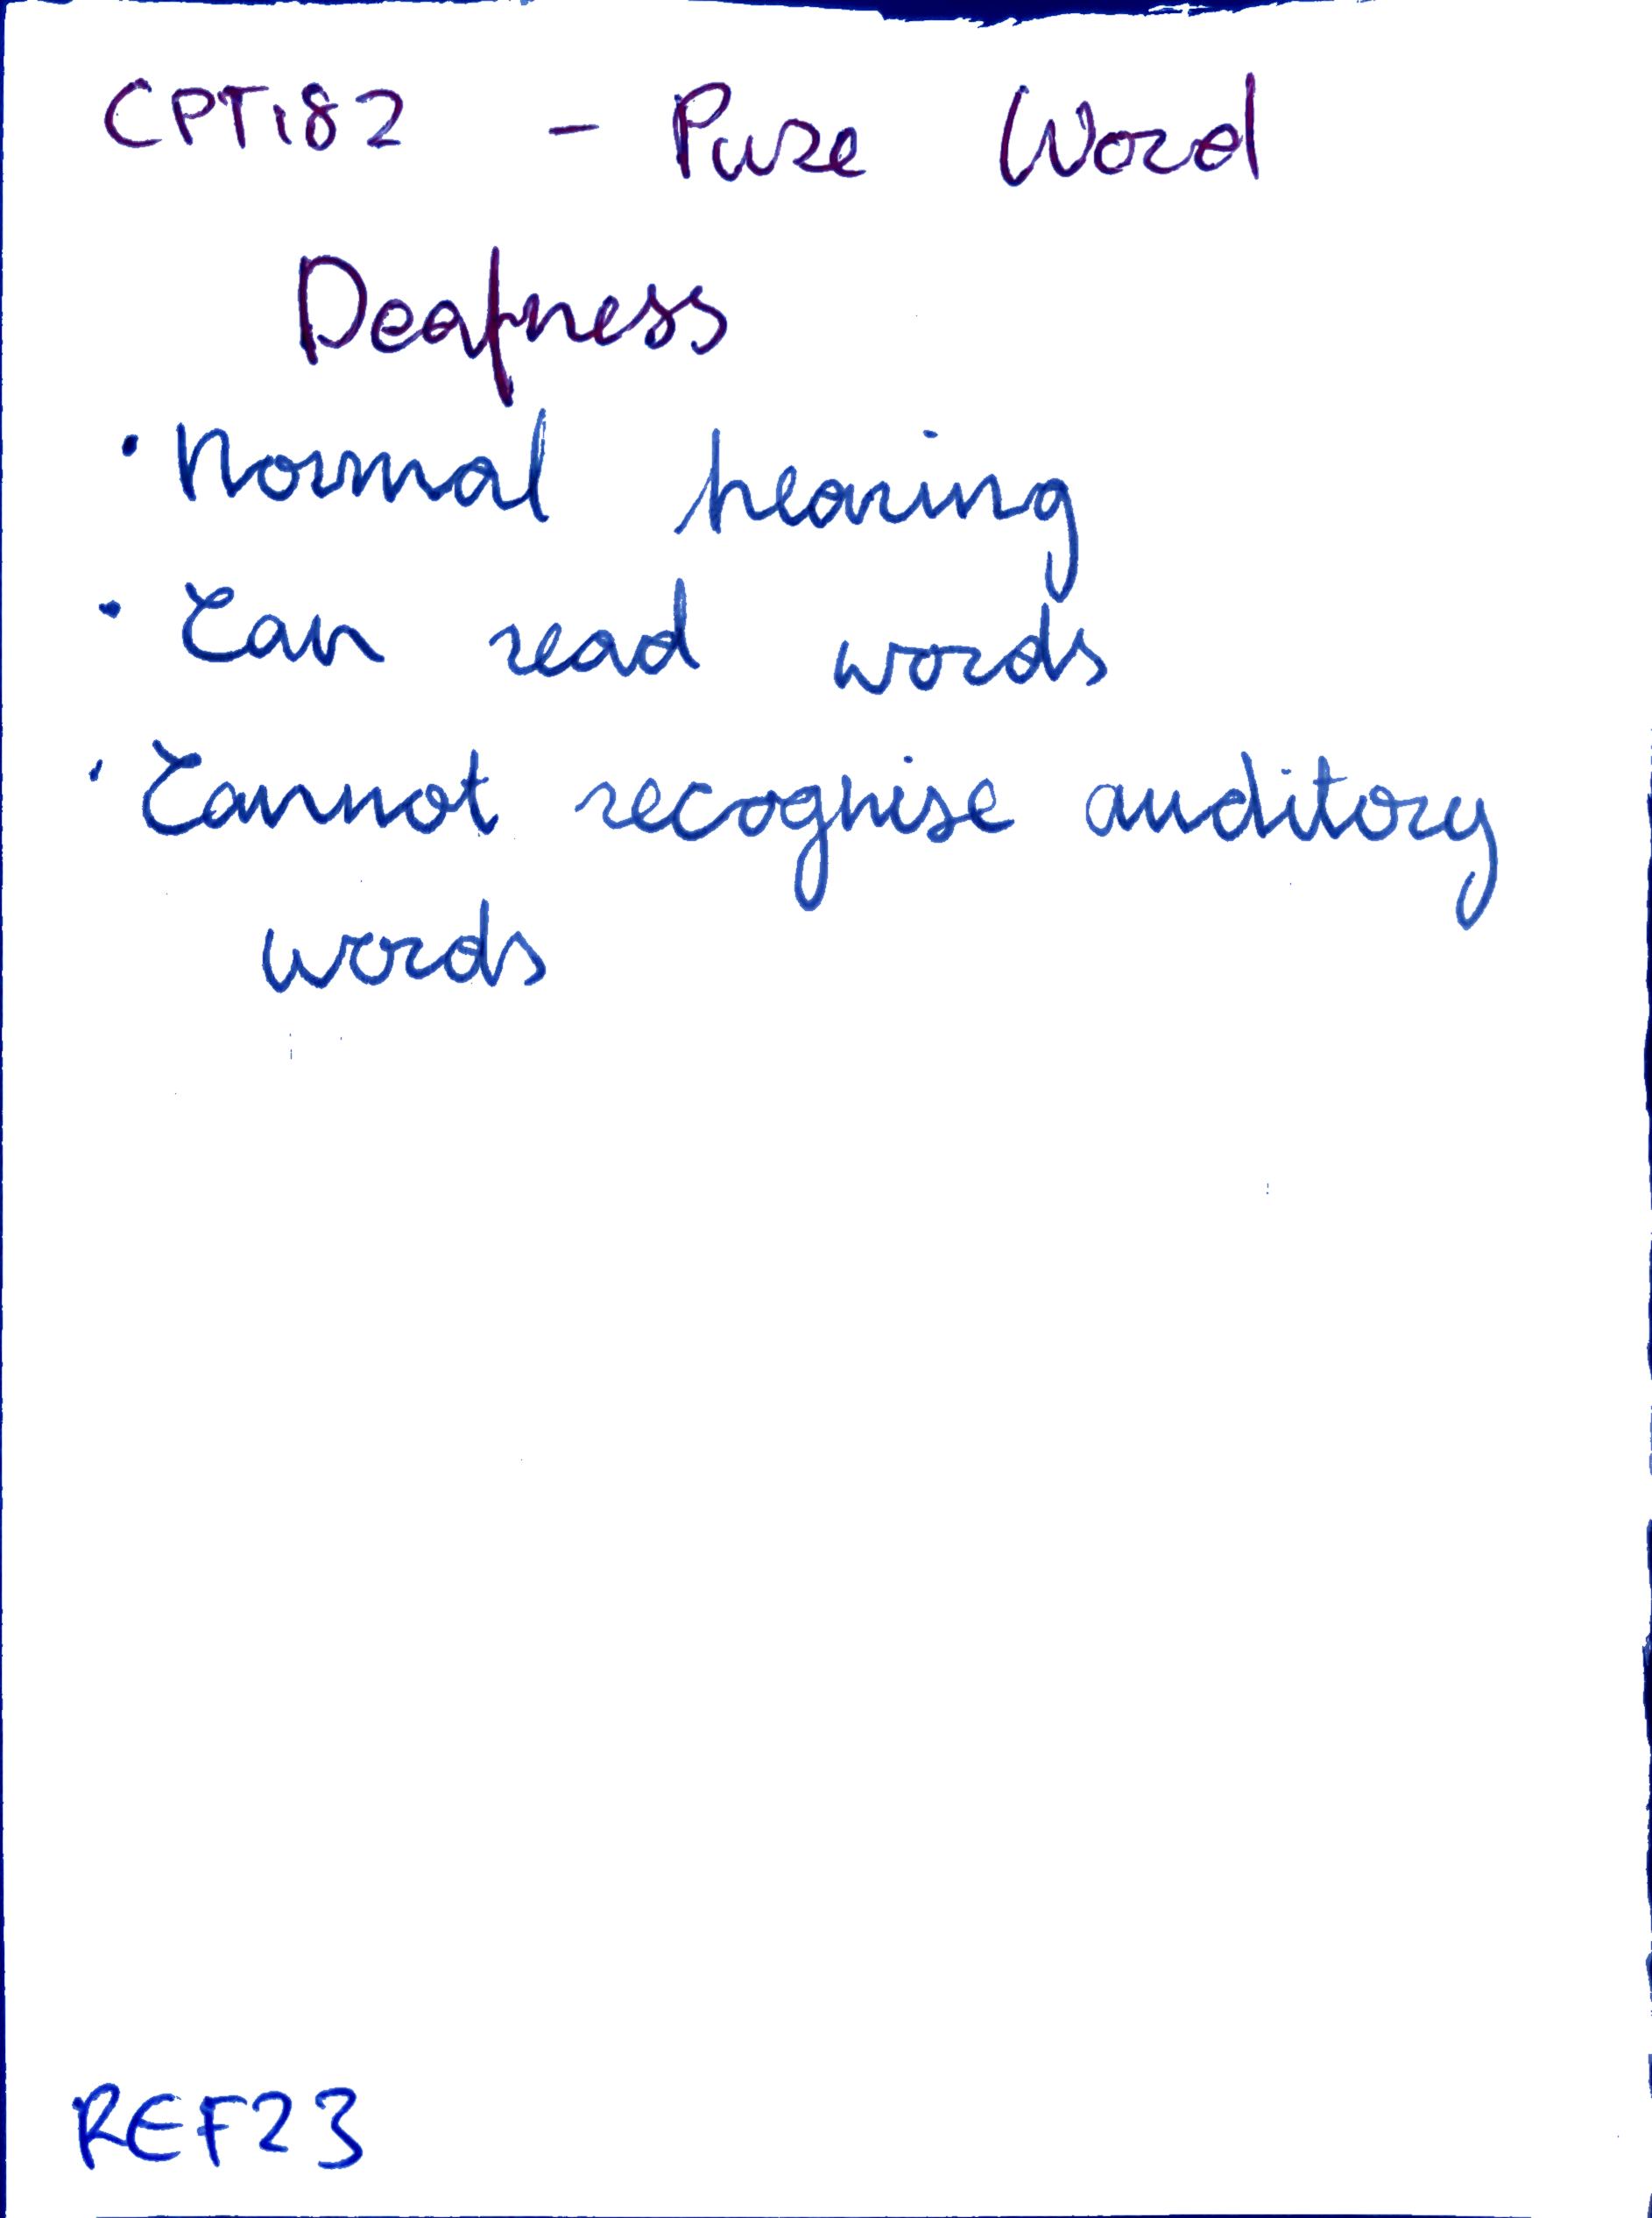 CPT182 - Pure Word
Deafness
• Normal hearing
• Can read words
• Cannot recognise auditory
words
REF23